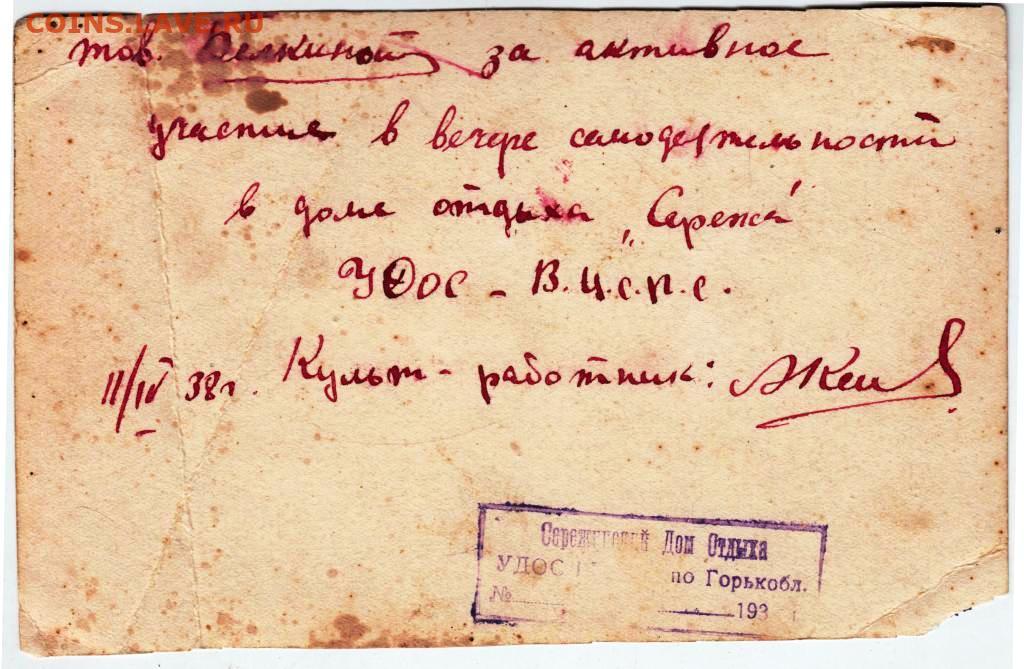 COINS.LAVE.RU
тов. Белкиной за активное
участие в вечере самодеятельности
в доме отдыха „Сережа"
УДОС - В.Ц.С.П.С.
11/IV 38 г. Культ-работник:
Сережинский Дом Отдыха
УДОС по Горькобл.
№ 193 г.